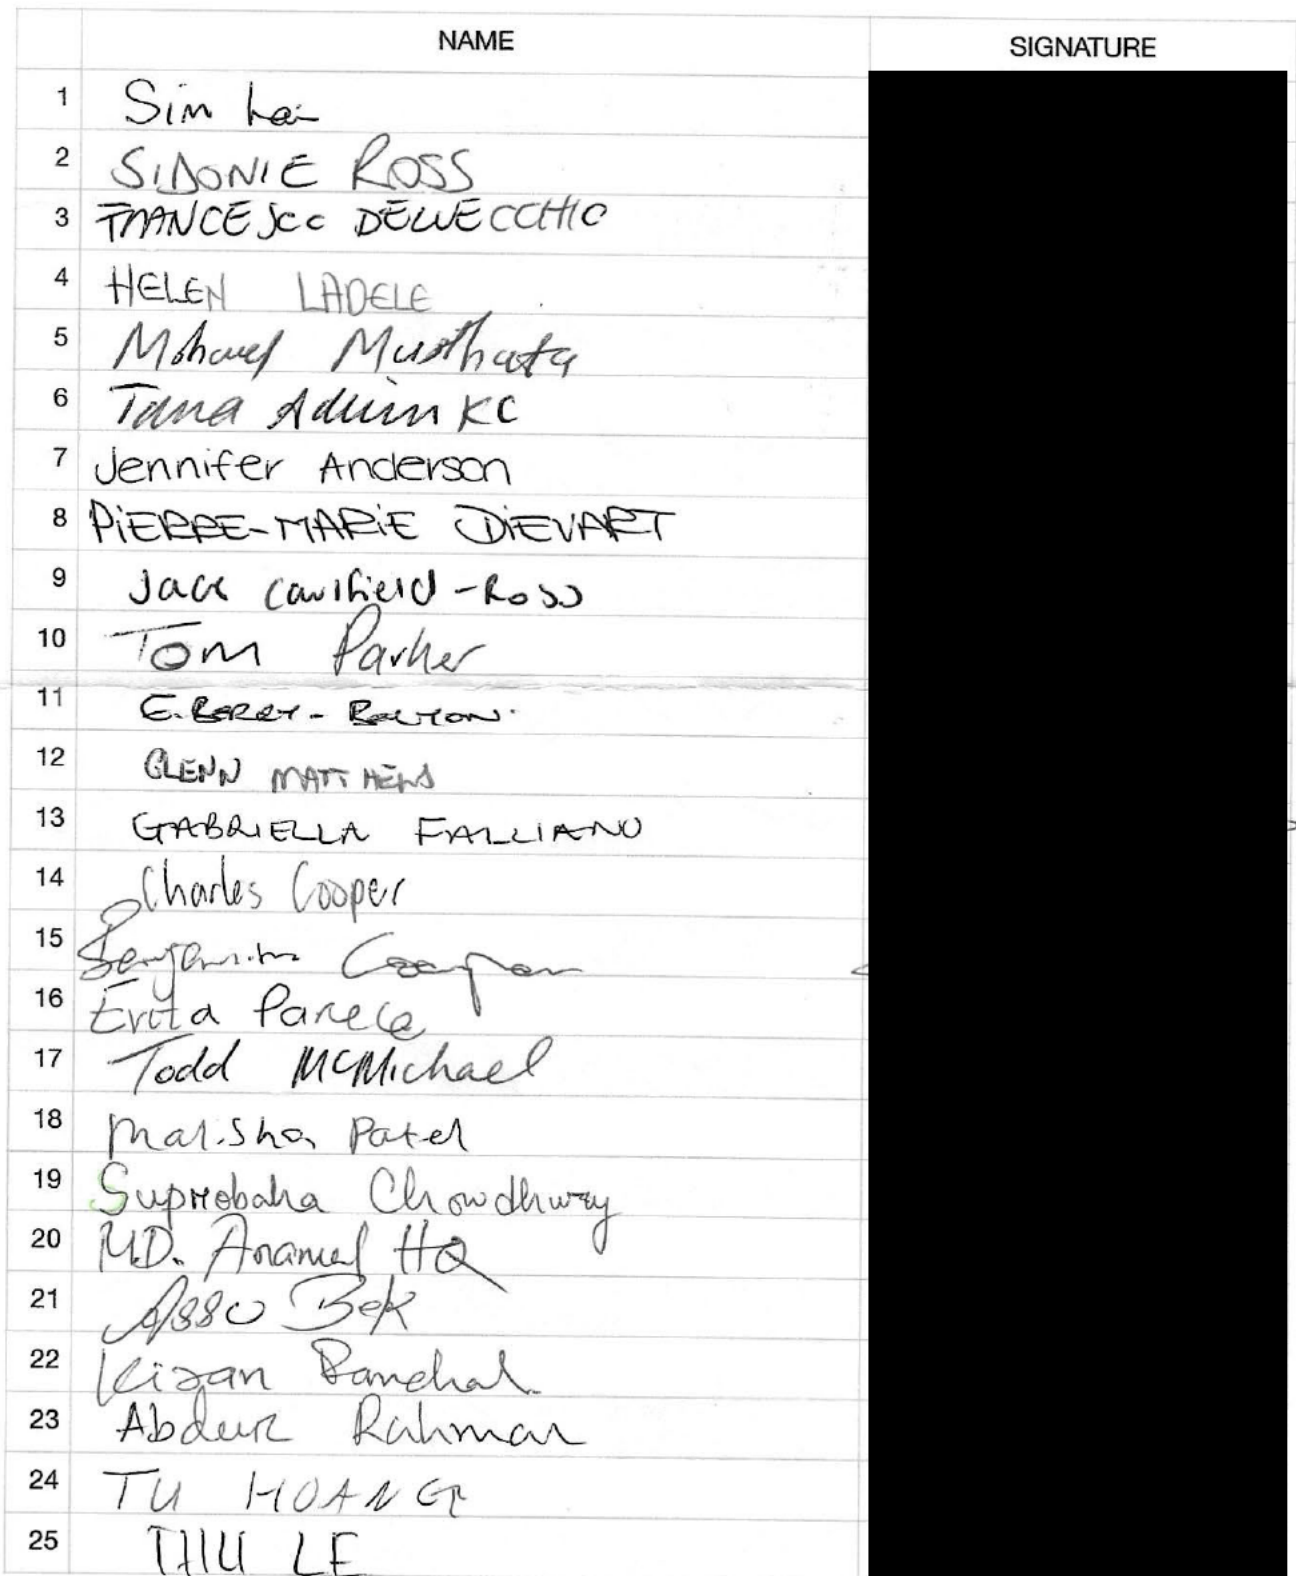 NAME SIGNATURE
1 Sim Lai
2 SIDONIE ROSS
3 FRANCESCO DELVECCHIO
4 HELEN LADELE
5 Musthafa
6 Tana Adkin KC
7 Jennifer Anderson
8 PiERRE-MARiE DiEVART
9 Jack Caulfield-Ross
10 Tom Parker
11 E. BERRY-BOLTON.
12 GLENN MATTHEWS
13 GABRIELLA FALLIANO
14 Charles Cooper
15 Benjamin Cooper
16 Evita
17 Todd McMichael
18 Malisha Patel
19 Chowdhury
20 M.D.
21 Bek
22 Kiran
23 Abdur Rahman
24 TU HOANG
25 THU LE